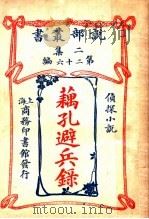 說部叢書
二集
第二十六編
偵探小說
藕孔避兵錄
上海
商務印書館發行